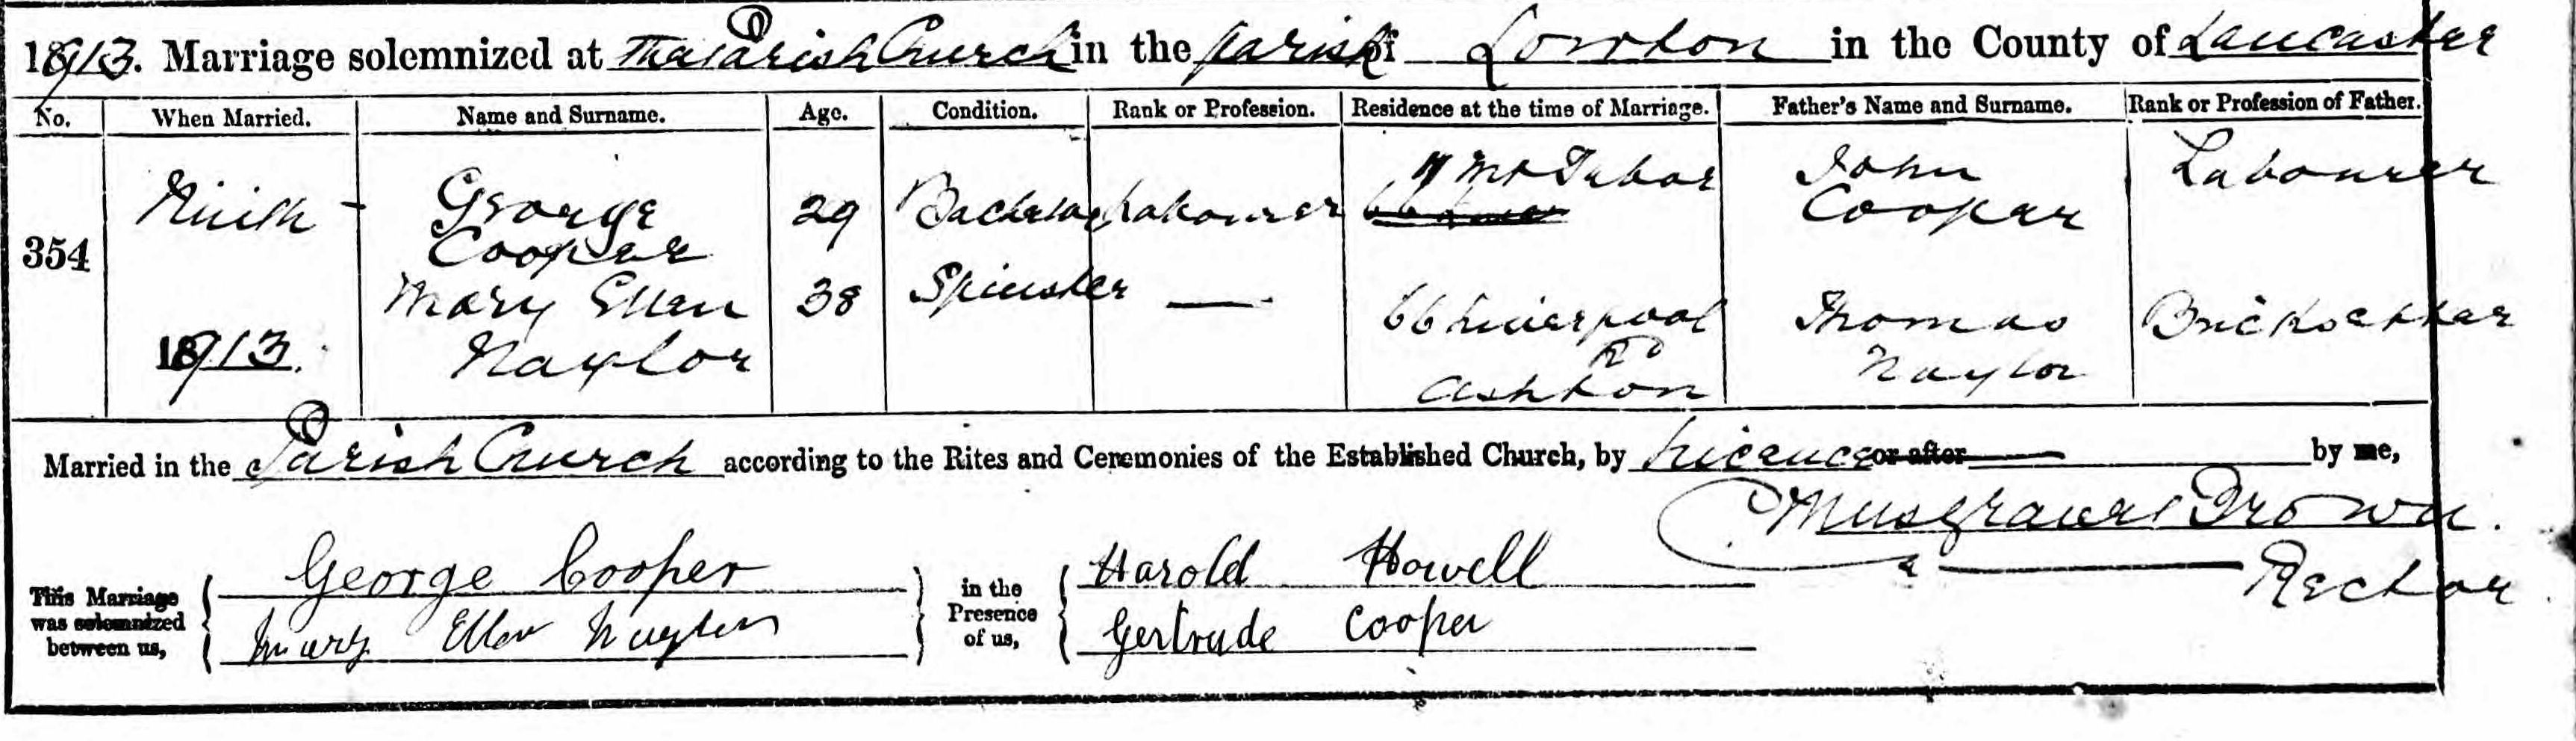 1913. Marriage solemnized at The Parish Church in the parish of Lowton in the County of Lancaster
No. When Married. Name and Surname. Age. Condition. Rank or Profession. Residence at the time of Marriage. Father's Name and Surname. Rank or Profession of Father.
354
1913.
George
Cooper
29
Bachelor
Labourer
11 Mt Tabor
66
John
Cooper
Labourer
Mary Ellen
Naylor
38
Spinster
—
66 Liverpool
Rd
Ashton
Thomas
Naylor
Bricksetter
Married in the Parish Church according to the Rites and Ceremonies of the Established Church, by Licence or after by me,
Musgrave Brown.
Rector
This Marriage
was solemnized
between us,
George Cooper
Mary Ellen Naylor
in the
Presence
of us,
Harold Howell
Gertrude Cooper